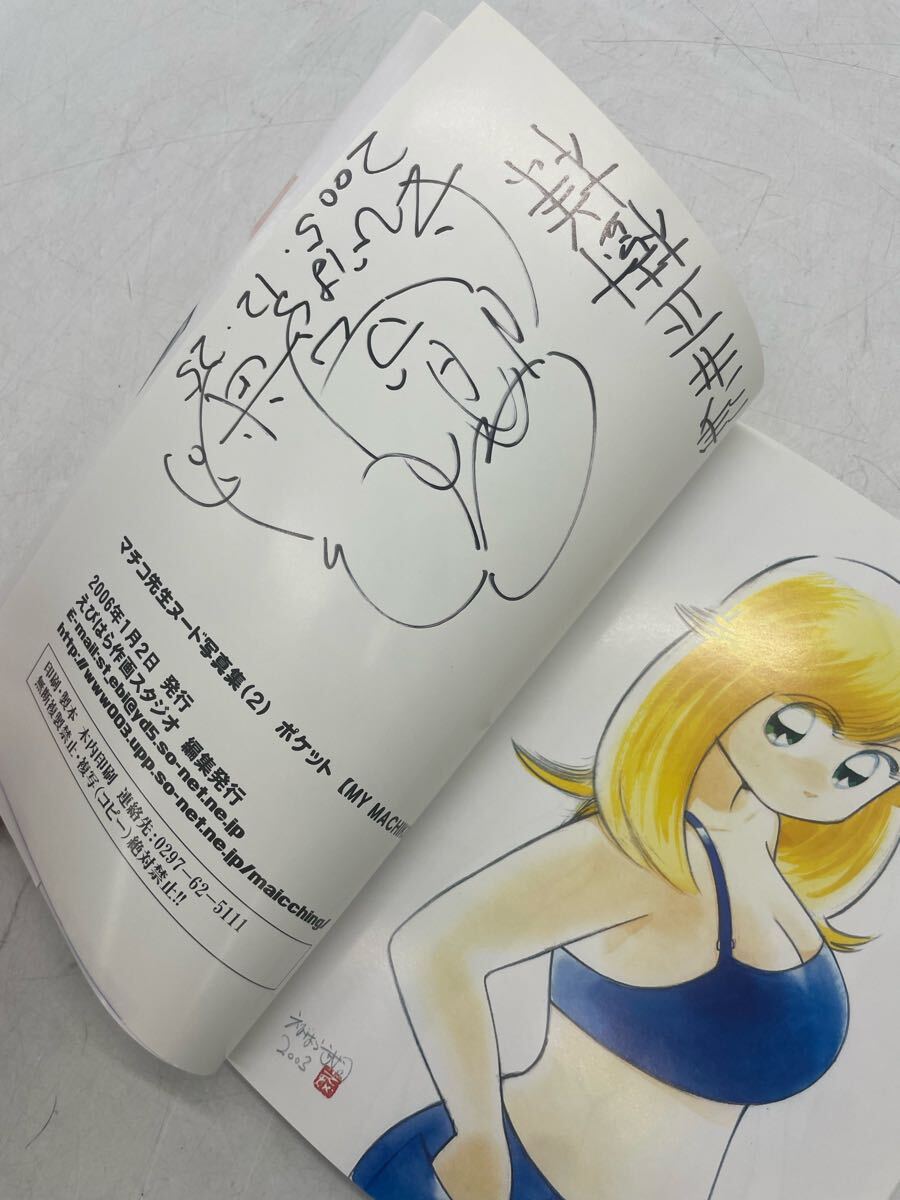 2005.12.25
マチコ先生ヌード写真集(2) ポケット 【MY MACHIK
2006年1月2日 発行
えびはら作画スタジオ 編集発行
E-mail:st_ebi@yd5.so-net.ne.jp
http://www003.upp.so-net.ne.jp/maicching/
印刷・製本 木内印刷 連絡先:0297-62-5111
無断複製禁止・複写(コピー)絶対禁止!!
2003